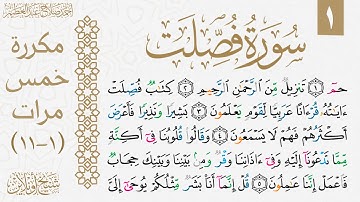 ١
سُورَةُ فُصِّلَتْ
مكررة
خمس
مرات
(١-١١)
حمٓ ١ تَنزِيلٌ مِّنَ ٱلرَّحْمَٰنِ ٱلرَّحِيمِ ٢ كِتَٰبٌ فُصِّلَتْ
ءَايَٰتُهُۥ قُرْءَانًا عَرَبِيًّا لِّقَوْمٍ يَعْلَمُونَ ٣ بَشِيرًا وَنَذِيرًا فَأَعْرَضَ
أَكْثَرُهُمْ فَهُمْ لَا يَسْمَعُونَ ٤ وَقَالُوا۟ قُلُوبُنَا فِىٓ أَكِنَّةٍ
مِّمَّا تَدْعُونَآ إِلَيْهِ وَفِىٓ ءَاذَانِنَا وَقْرٌ وَمِنۢ بَيْنِنَا وَبَيْنِكَ حِجَابٌ
فَٱعْمَلْ إِنَّنَا عَٰمِلُونَ ٥ قُلْ إِنَّمَآ أَنَا۠ بَشَرٌ مِّثْلُكُمْ يُوحَىٰٓ إِلَىَّ